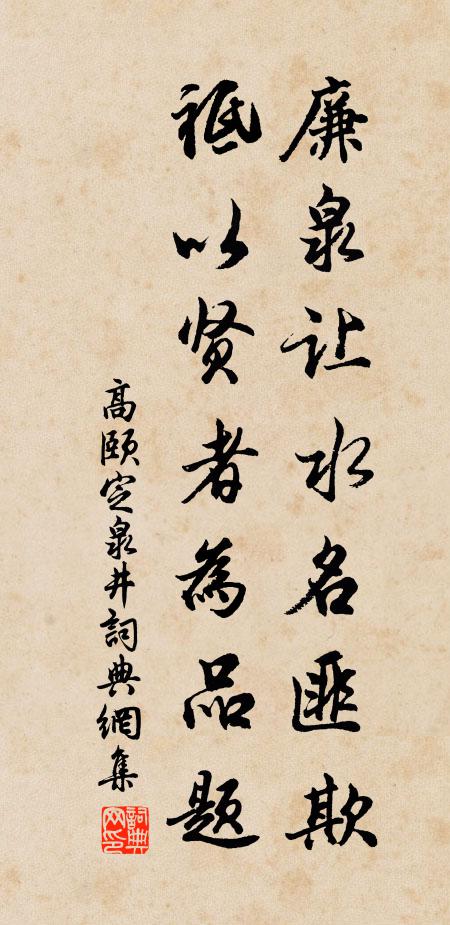 廉泉让水名匪欺
祗以贤者為品题
高颐定泉井詞典網集
詞典網印